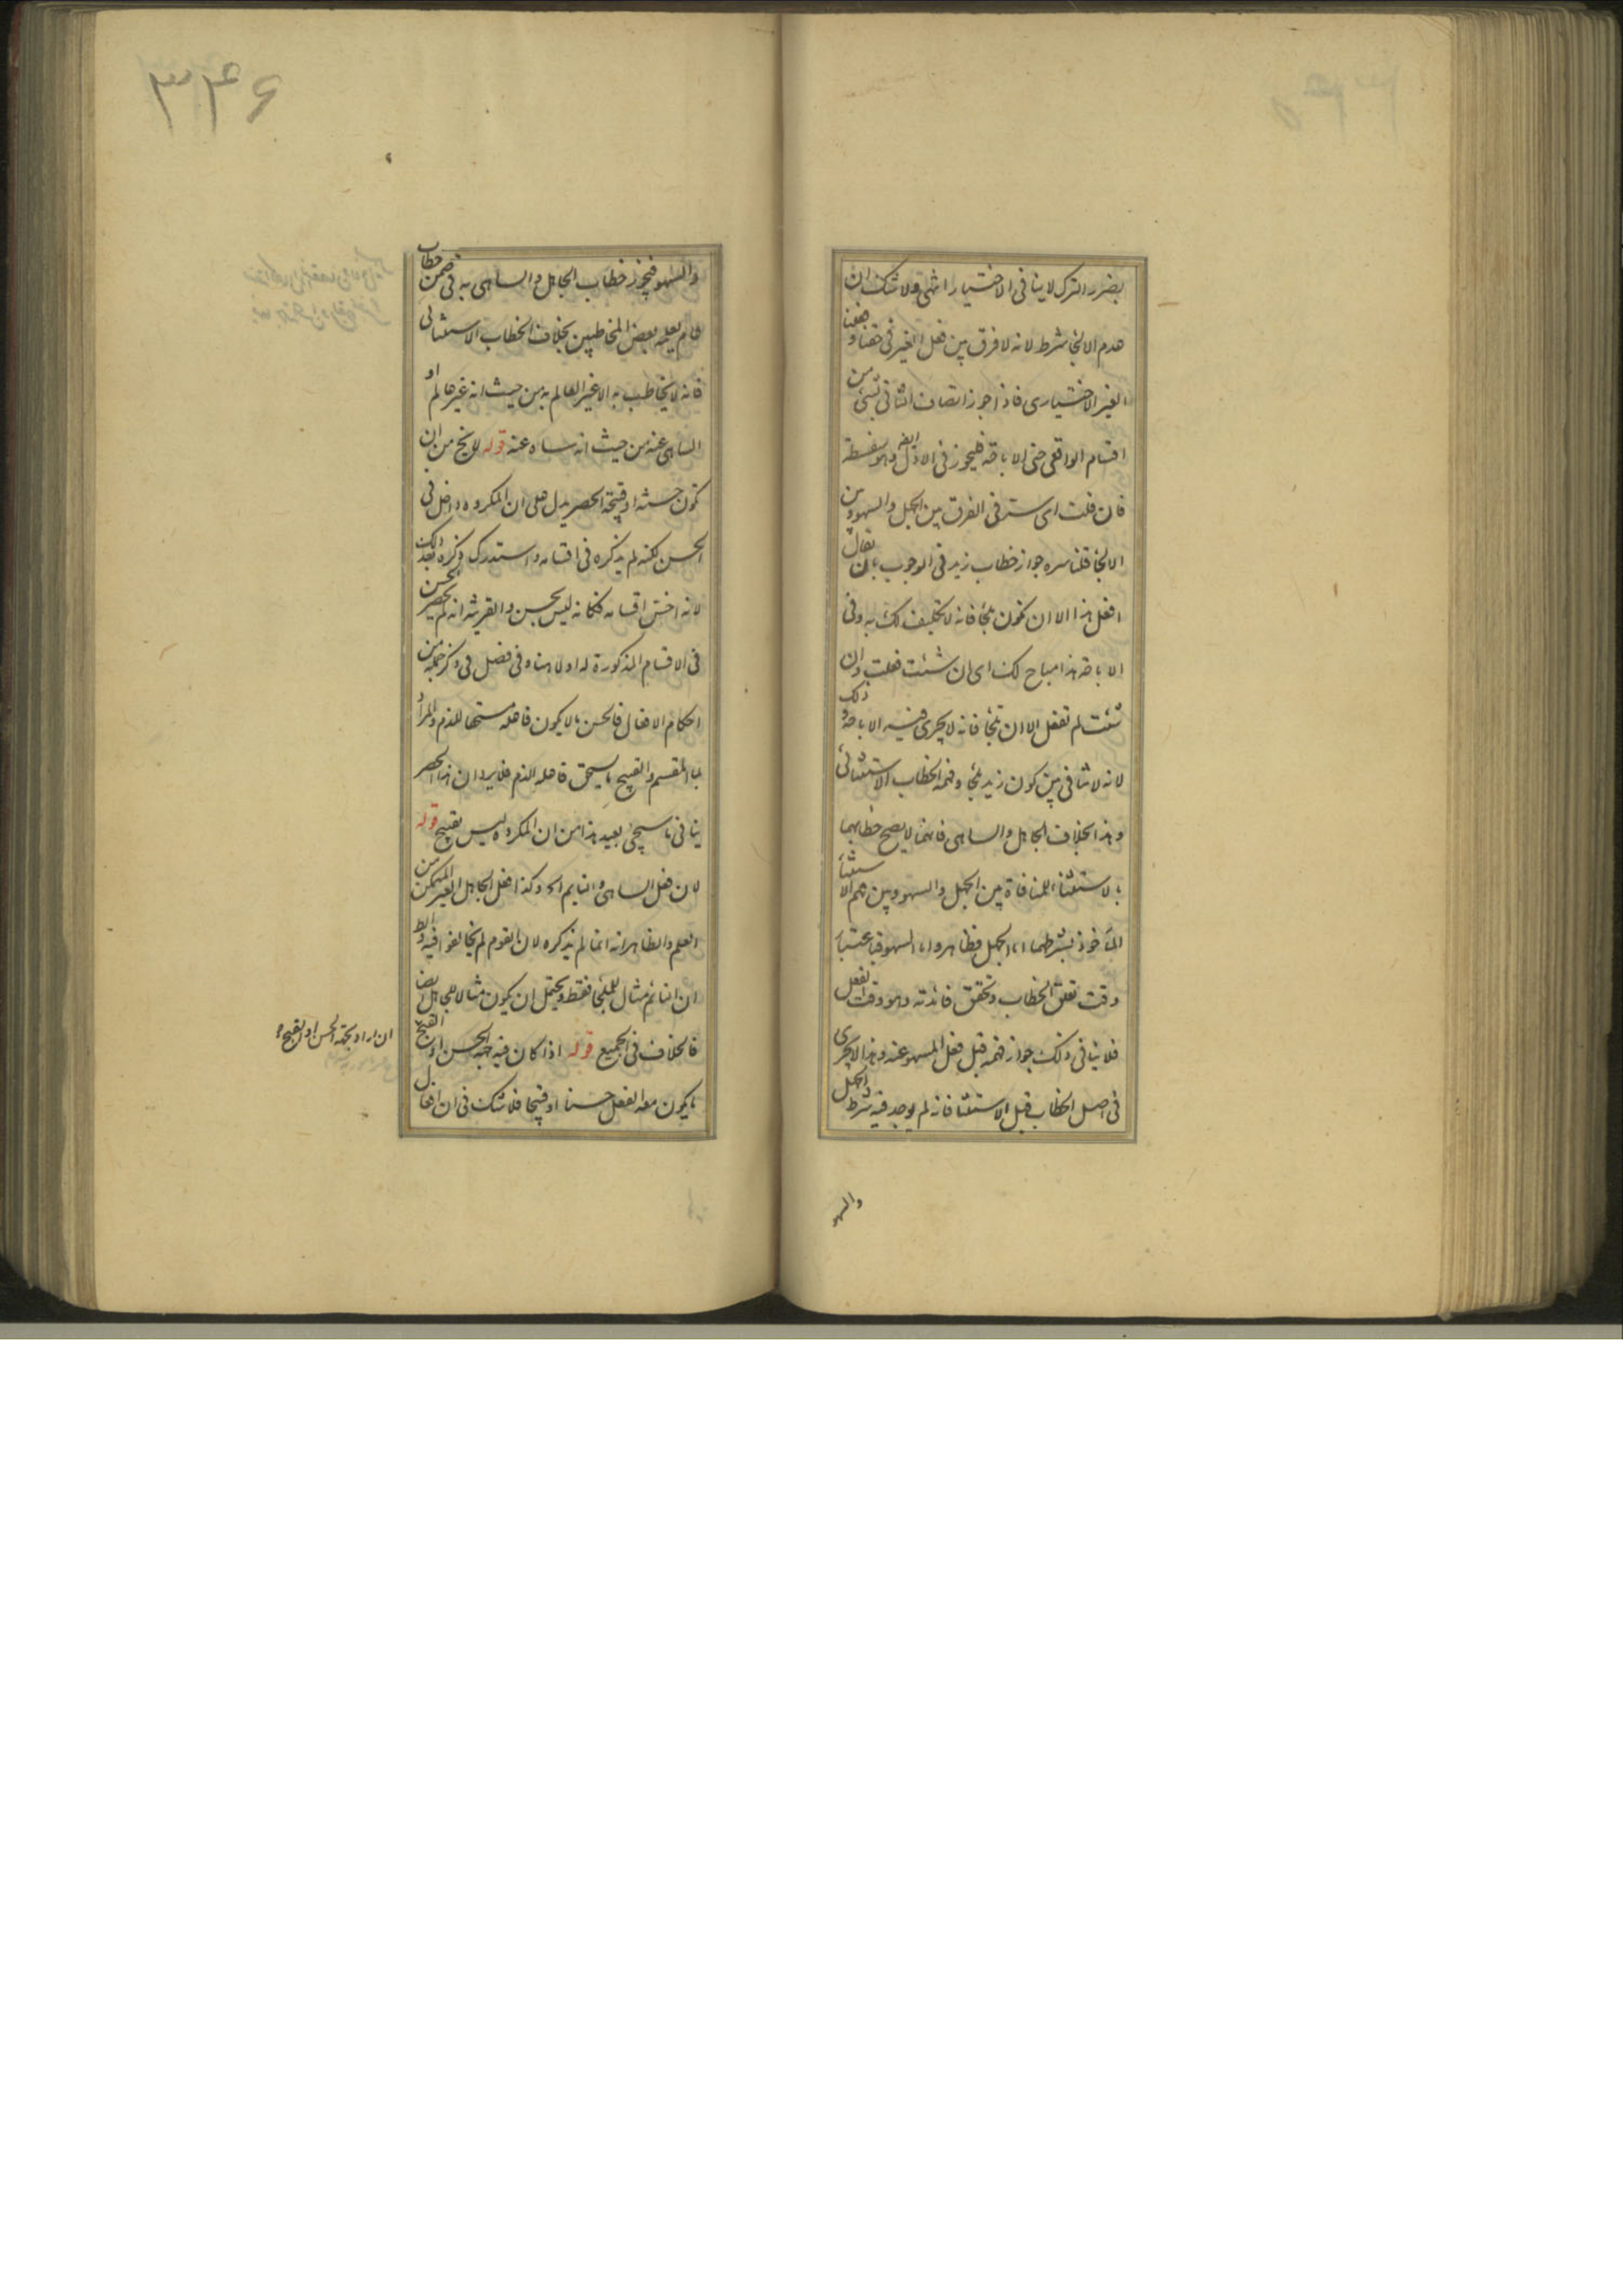 بضرر الترك لا ينافى الاختيار انتهى ولا شك ان
عدم الالجا شرط لانه لا فرق بين فعل الغير فى حقنا و فعلنا
الغير الاختيارى فاذا جوز اتصاف الثانى بشئ من
اقسام الواقعى حتى الاباحة فليجوز فى الاول ايضه وهو سفسطة
فان قلت اى ستر فى الفرق بين الجهل والسهو وبين
الالجا قلنا سره جواز خطاب زيد فى الوجوب بان يقال
افعل هذا الا ان تكون ملجأ فانه لا تكليف لك به وفى
الاباحة هذا مباح لك اى ان شئت فعلت وان
شئت لم تفعل الا ان تلجأ فانه لا يجرى فيه الاباحة و ذلك
لانه لا تنافى بين كون زيد ملجأ وفهمه الخطاب الاستثنائى
وهذا بخلاف الجاهل والساهى فانهما لا يصح خطابهما
بالاستثناء للمنافاة بين الجهل والسهو وبين فهم الاستثناء
المأخوذ بشرطهما اما الجهل فظاهر واما السهو فباعتبار
وقت تعلق الخطاب وتحقق فائدته وهو وقت الفعل
فلا ينافى ذلك جواز فهمه قبل فعل المسهو عنه وهذا لا يجرى
فى اصل الخطاب قبل الاستثنا فانه لم يوجد فيه شرط الجهل
والسهو
٣٣۶
والسهو فيجوز خطاب الجاهل والساهى به فى ضمن خطاب
عام يعلمه بعض المخاطبين بخلاف الخطاب الاستثنائى
فانه لا يخاطب به الا غير العالم به من حيث انه غير عالم او
الساهى عنه من حيث انه ساه عنه قوله لا يخ من ان
تكون حسنة او قبيحة الحصر يدل على ان المكروه داخل فى
الحسن لكنه لم يذكره فى اقسامه واستدرك ذكره بعد ذلك
لانه اخس اقسامه فكانه ليس بحسن والقرينة انه لم يحصر الحسن
فى الاقسام المذكورة له اولا هنا وفى فصل فى ذكر جملة من
احكام الافعال فالحسن ما لا يكون فاعله مستحقا للذم والمراد
بها المقسم والقبيح ما يستحق فاعله الذم فلا يرد ان هذا الحصر
ينافى ما سيجئ بعيد هذا من ان المكروه ليس بقبيح قوله
لان فعل الساهى والنايم الخ وكذا فعل الجاهل الغير المتمكن من
العلم والظاهر انه انما لم يذكره لان القوم لم يخالفوا فيه والظ
ان النائم مثال للملجأ فقط ويحتمل ان يكون مثالا للجاهل ايضا
فالخلاف فى الجميع قوله اذا كان فيه جهة الحسن او القبح
ان اراد بجهة الحسن او القبح
ما يكون معه الفعل حسنا او قبيحا فلا شك فى ان افعال